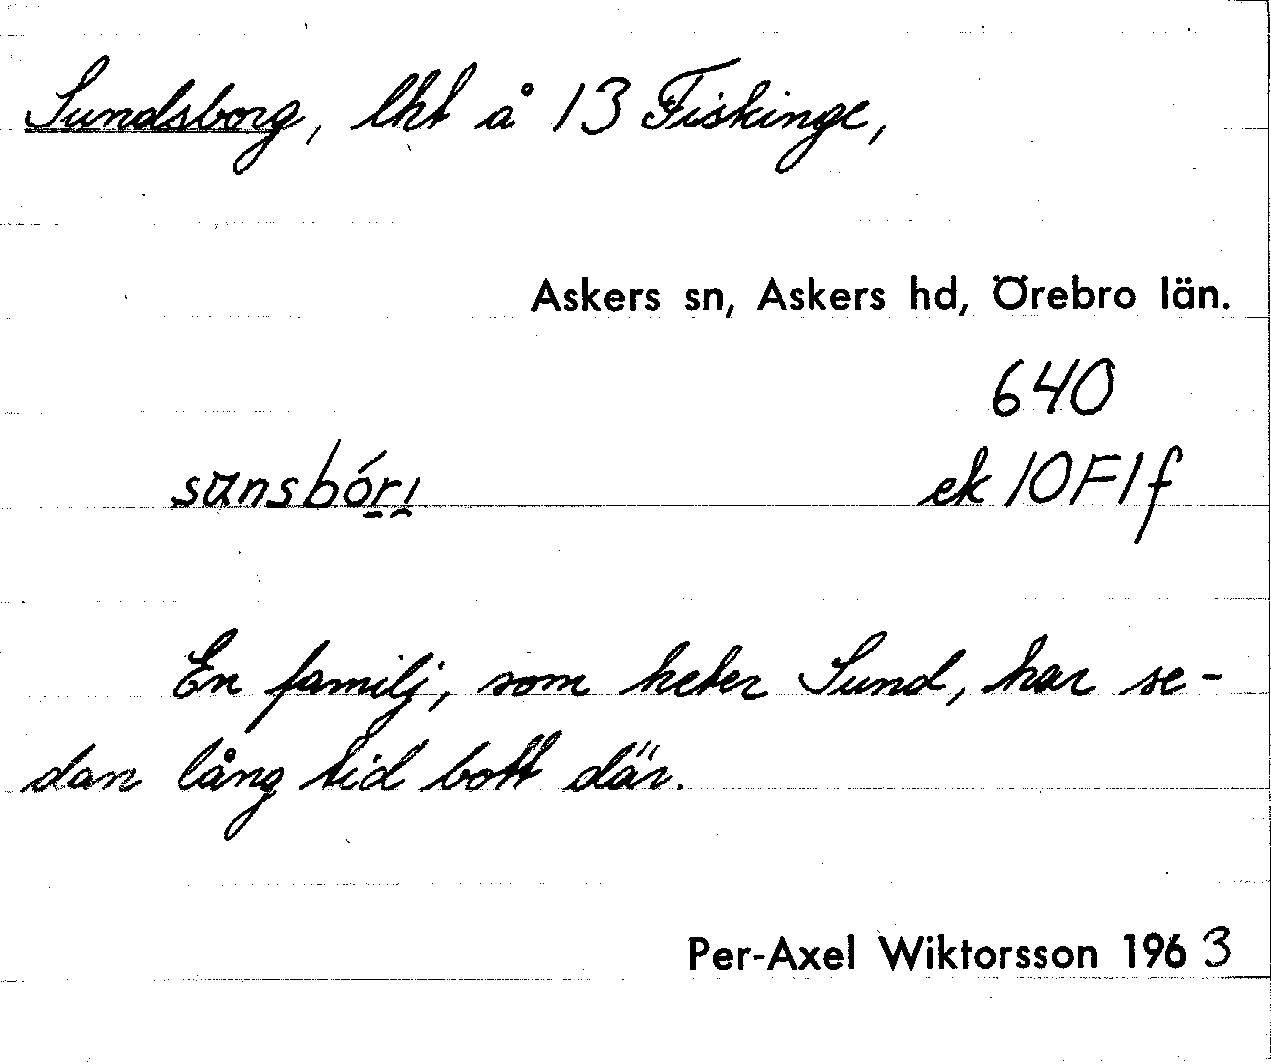 Sundsborg, lht å 13 Fiskinge,
Askers sn, Askers hd, Örebro län.
640
ek 10F1f
En familj, som heter Sund, har se-
dan lång tid bott där.
Per-Axel Wiktorsson 1963